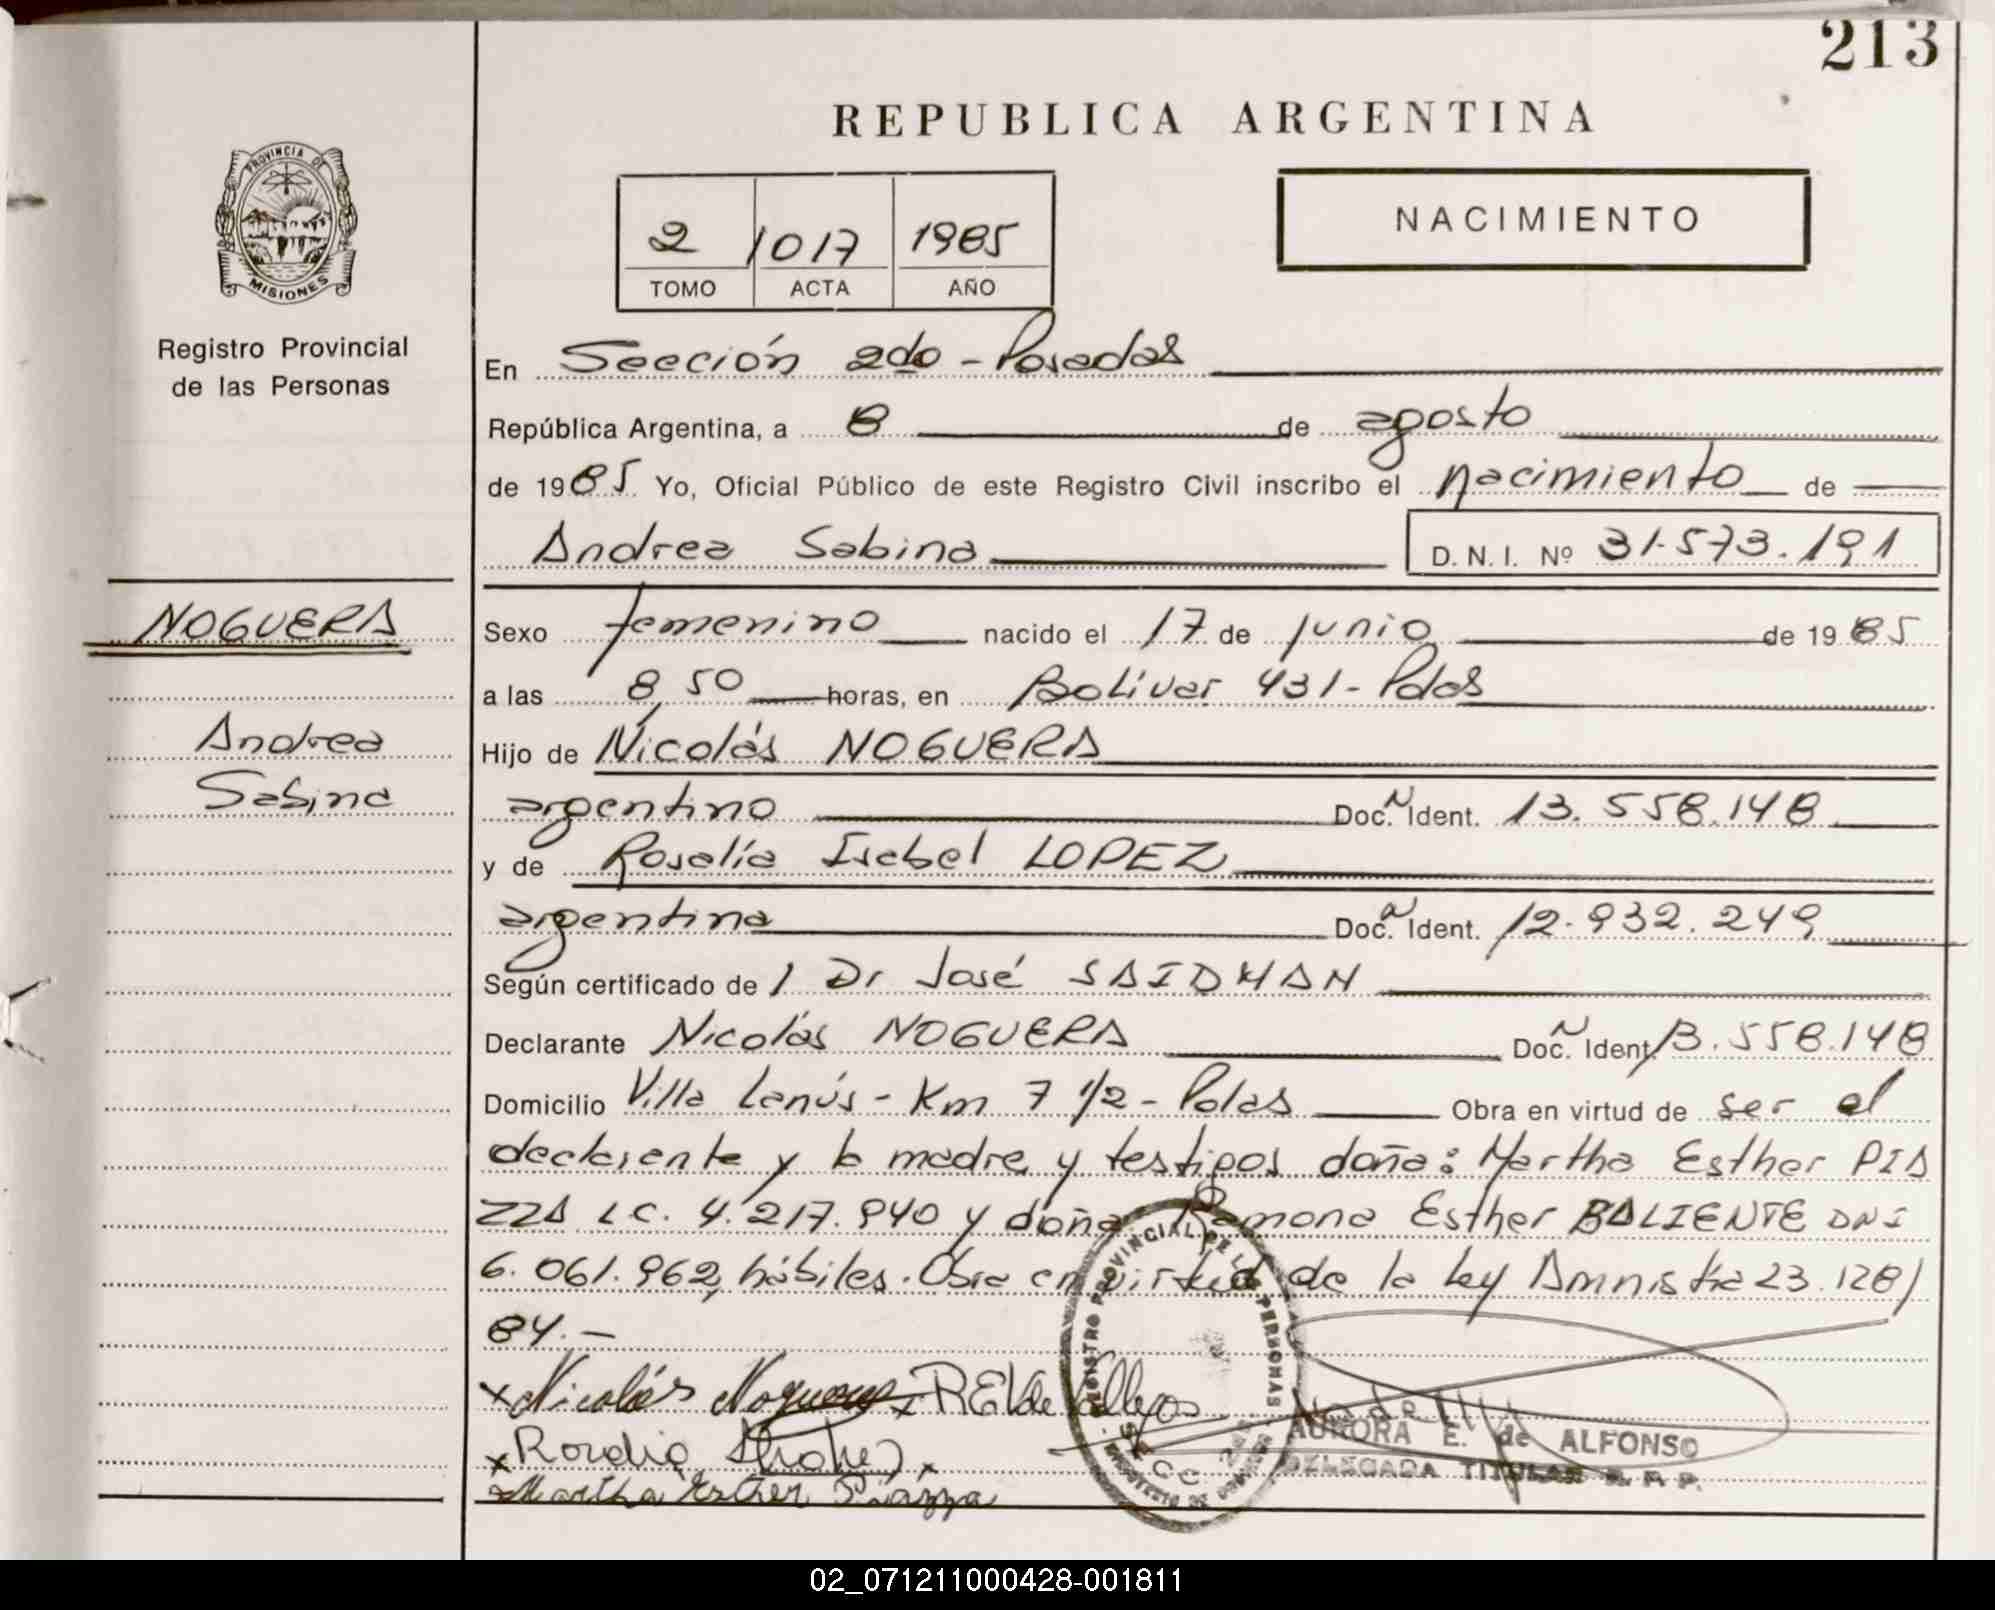 213
REPUBLICA ARGENTINA
PROVINCIA DE
MISIONES
2 1017 1985
TOMO ACTA AÑO
NACIMIENTO
Registro Provincial
de las Personas
En Sección 2do - Posadas
República Argentina, a 8 de agosto
de 1985 Yo, Oficial Público de este Registro Civil inscribo el nacimiento de
Andrea Sabina D. N. I. Nº 31.573.191
NOGUERA
Andrea
Sabina
Sexo femenino nacido el 17 de junio de 1985
a las 8,50 horas, en Bolívar 431 - Pdas
Hijo de Nicolás NOGUERA
argentino Doc. Ident. 13.558.148
y de Rosalía Isabel LOPEZ
argentina Doc. Ident. 12.932.249
Según certificado de / Dr José SAIDMAN
Declarante Nicolás NOGUERA Doc. Ident. 13.558.148
Domicilio Villa Lanús - Km 7 1/2 - Pdas Obra en virtud de ser el
declarente y la madre y testigos doña: Martha Esther PIA
ZZA LC. 4.217.940 y doña Ramona Esther BALIENTE DNI
6.061.962, hábiles. Obra en virtud de la ley Amnistia 23.128/
84.-
x Nicolás Noguera x REV de Vallejos
x
x Martha Esther Piazza
REGISTRO PROVINCIAL DE LAS PERSONAS
SECC 2da
AURORA E. de ALFONSO
DELEGADA TITULAR R. P. P.
02_071211000428-001811